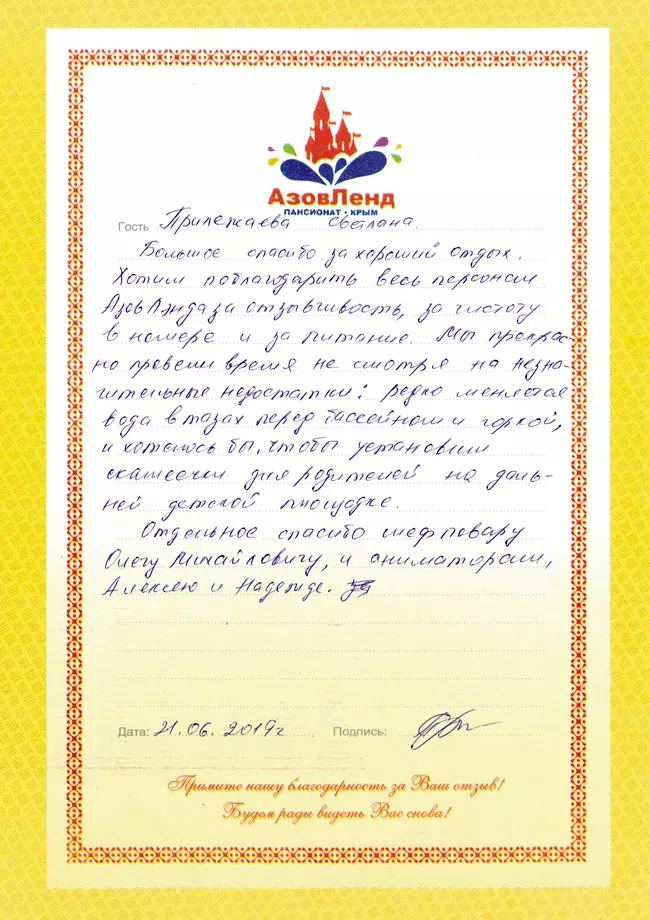 АзовЛенд
ПАНСИОНАТ • КРЫМ
Гость Прилежаева Светлана.
Большое спасибо за хороший отдых.
Хотим поблагодарить весь персонал
АзовЛэнда за отзывчивость, за чистоту
в номере и за питание. Мы прекрас-
но провели время не смотря на незна-
чительные недостатки: редко меняется
вода в тазах перед бассейном и горкой,
и хотелось бы, чтобы установили
скамеечки для родителей на даль-
ней детской площадке.
Отдельное спасибо шеф повару
Олегу Михайловичу, и аниматорам,
Алексею и Надежде.
Дата: 21.06.2019г Подпись:
Примите нашу благодарность за Ваш отзыв!
Будем рады видеть Вас снова!